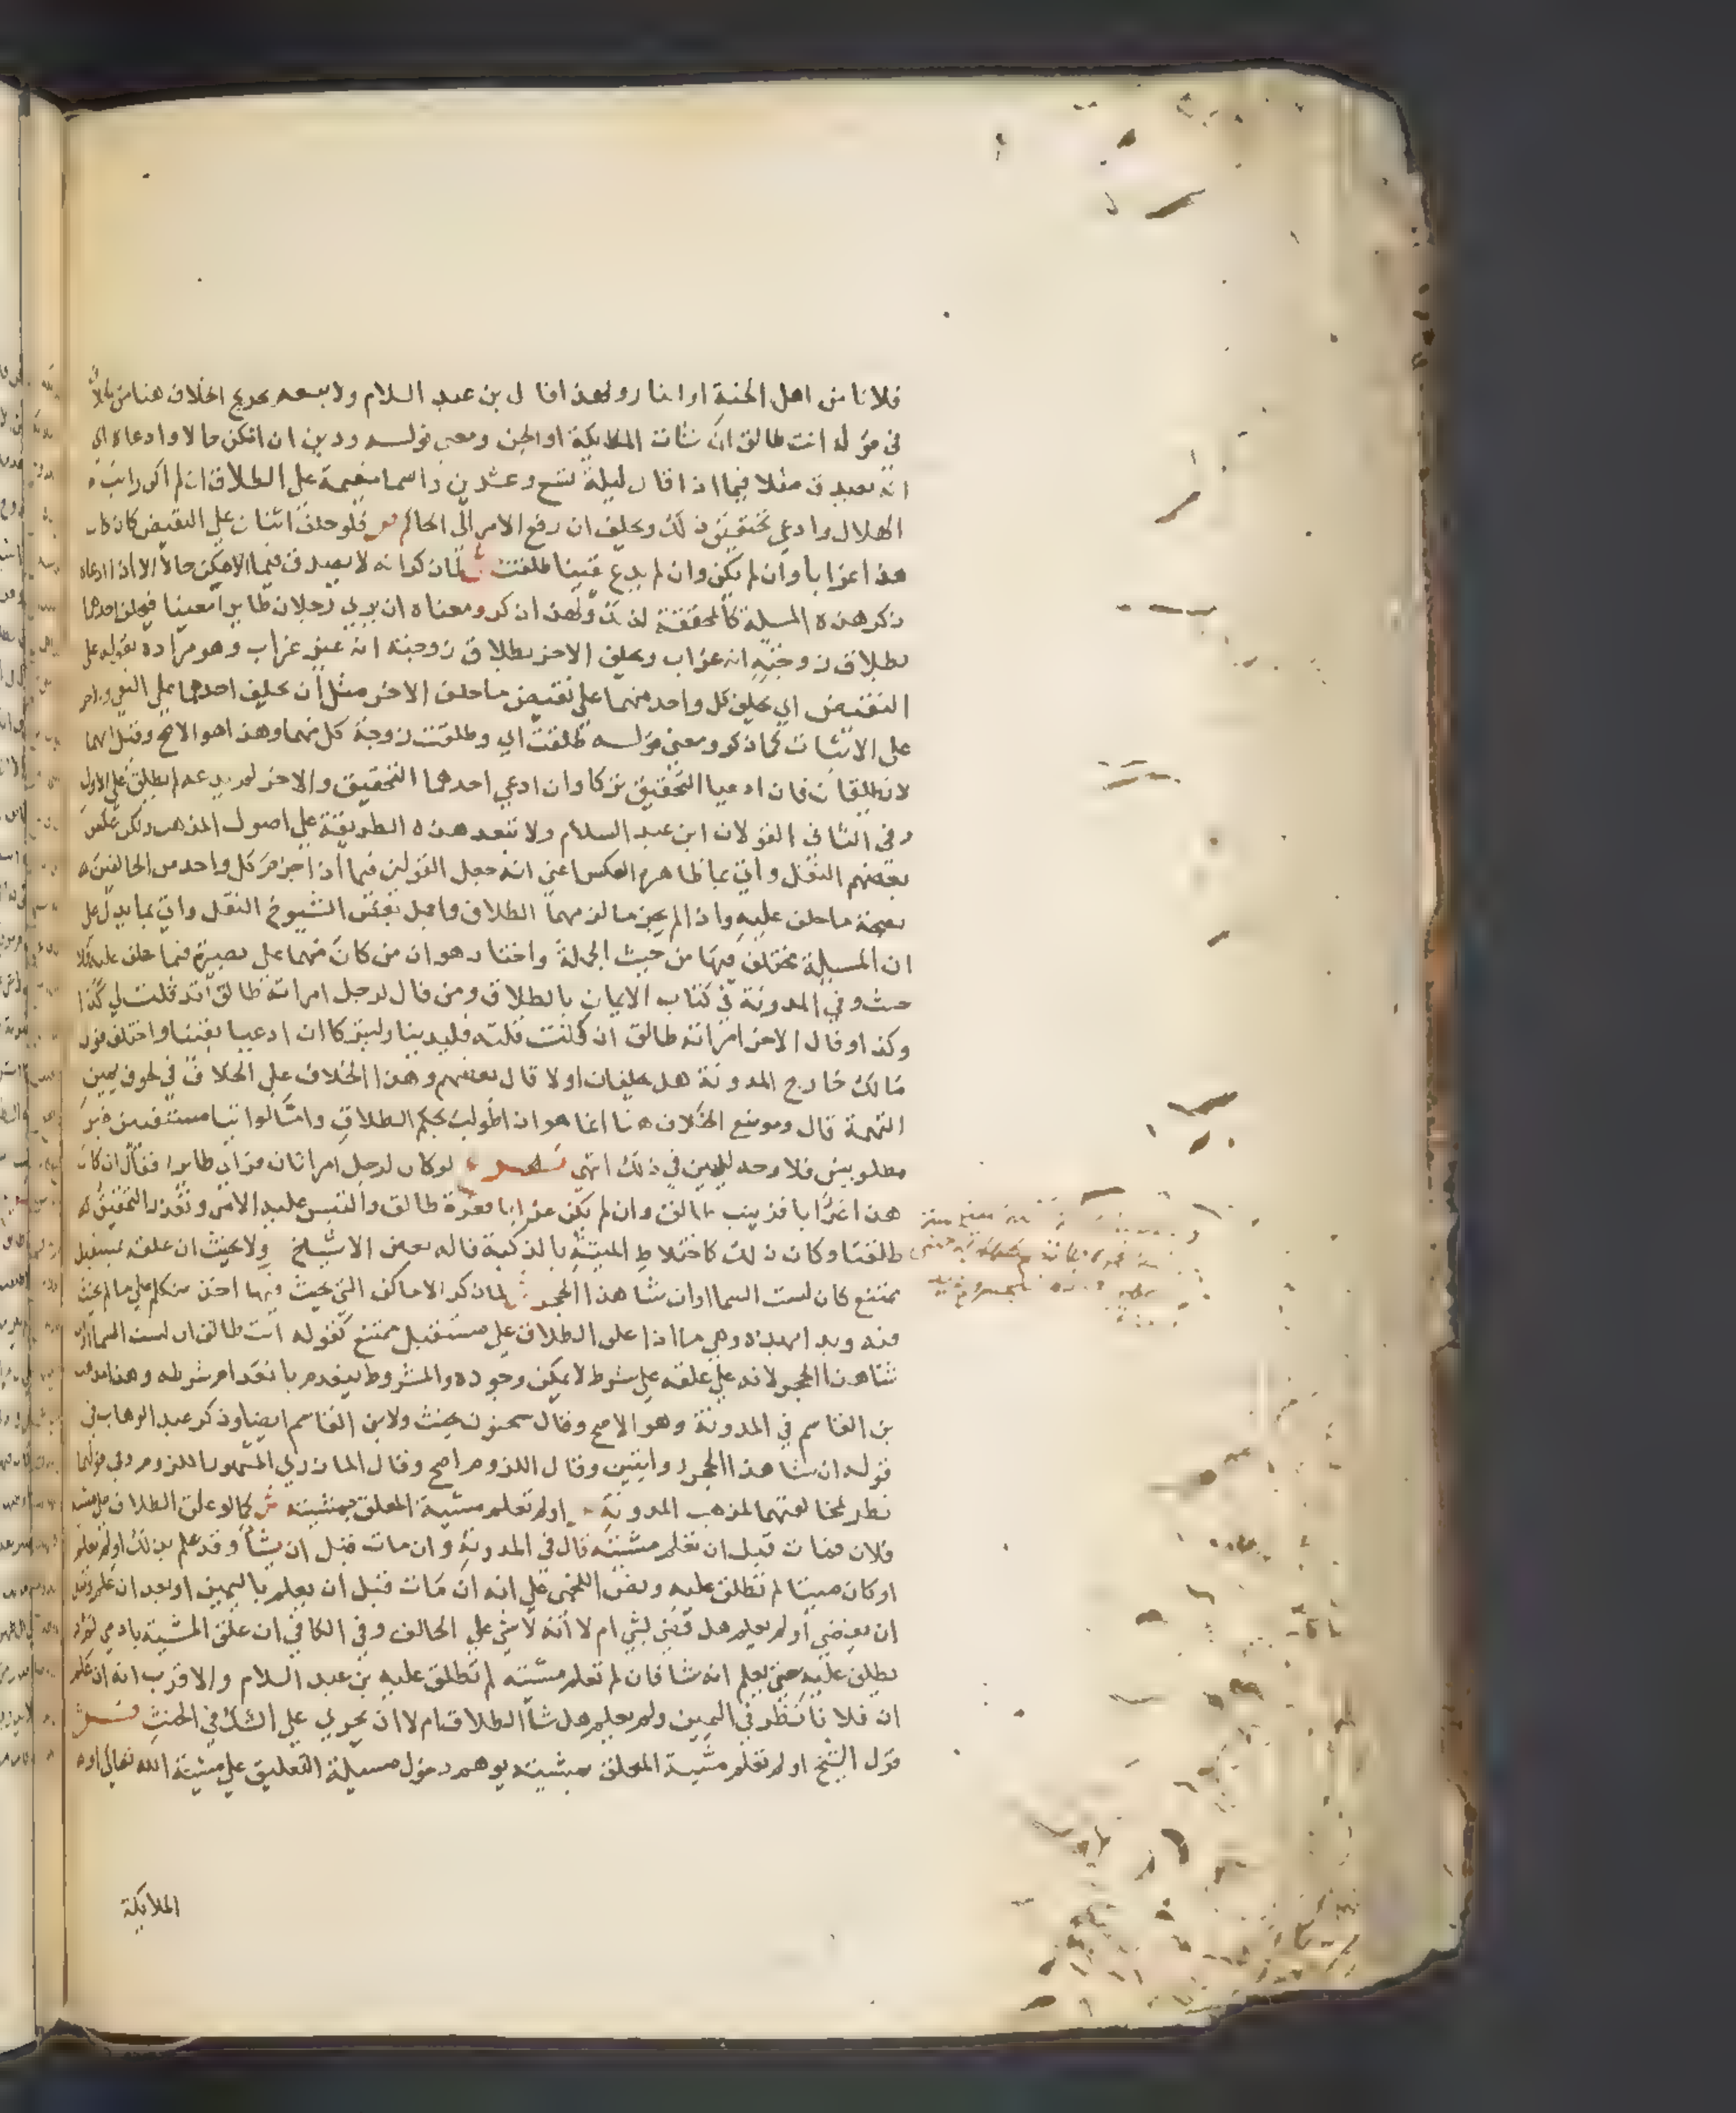 فلانا من اهل الجنة او النار ولهذا قال بن عبد السلام ولا يبعد تخريج الخلاف هنا من
في قوله انت طالق ان شات الملايكة او الجن ومعنى قوله ودين ان امكن حالا وادعاه اي
انه يصدق مثلا فيما اذا قال ليلة تسع وعشرين والسما مغيمة علي الطلاق ان لم اكن رايت
الهلال وادعي تحقيق ذلك ويحلف ان رفع الامر الى الحاكم ص فلو حلف اثنان علي النقيض كان كان
هذا غرابا وان لم يكن وان لم يدع يقينا طلقت ش لما ذكر انه لا يصدق فيما لا يمكن حالا الا اذا ادعاه
ذكر هذه المسلة كالمحققة لذلك ولهذا ذكر ومعناه ان يري رجلان طايرا معينا فيحلف احدهما
بطلاق زوجته انه غراب ويحلف الاخر بطلاق زوجته انه غير غراب وهو مراده بقوله علي
النقيض اي يحلف كل واحد منهما علي نقيض ما حلف الاخر مثل ان يحلف احدهما علي النفي والاخر
علي الاثبات كما ذكر ومعنى قوله طلقت اي وطلقت زوجة كل منهما وهذا هو الاصح وقيل انهما
لا تطلقان فان ادعيا التحقيق تركا وان ادعي احدهما التحقيق والاخر لم يدعه لم يطلق علي الاول
وفي الثاني القولان ابن عبد السلام ولا تبعد هذه الطريقة علي اصول المذهب ولكن عكس
بعضهم النقل واتي بما ظاهره العكس اعني انه جعل القولين فيما اذا جزم كل واحد من الحالفين
بصحة ما حلف عليه واذا لم يجزما لزمهما الطلاق واجمل بعض الشيوخ النقل واتي بما يدل علي
ان المسيلة مختلف فيها من حيث الجملة واختار هو ان من كان منهما علي بصيرة فيما حلف عليه فلا
حنث وفي المدونة في كتاب الايمان بالطلاق ومن قال لرجل امراته طالق لقد قلت لي كذا
وكذا وقال الاخر امراته طالق ان كنت قلته فليدينا وليتركا ان ادعيا يقينا واختلف قول
مالك خارج المدونة هل يحلفان او لا قال بعضهم وهذا الخلاف علي الخلاف في لحوق يمين
التهمة قال وموضع الخلاف هنا انما هو ان طولبت بحكم الطلاق واما لو اتيا مستفتيين غير
مطلوبين فلا وجه لليمين في ذلك انتهي لو كان لرجل امراتان فراي طايرا فقال ان كان
هذا غرابا فزينب طالق وان لم يكن غرابا فعزة طالق والتبس عليه الامر وتعذر التحقيق له
طلقتا وكان ذلك كاختلاط الميتة بالذكية قاله بعض الاشياخ ولا يحنث ان علقه بمستقبل
ممتنع كان لمست السما او ان شا هذا الحجر ش لما ذكر الاماكن التي يحنث فيها اخذ يتكلم علي ما لم يحنث
فيه وبدا بهذه وهي ما اذا علق الطلاق علي مستقبل ممتنع كقوله انت طالق ان لمست السما او ان
شا هذا الحجر لانه علق علي شرط لا يمكن وجوده والمشروط ينعدم بانعدام شرطه وهذا مذهب
بن القاسم في المدونة وهو الاصح وقال سحنون يحنث ولابن القاسم ايضا وذكر عبد الوهاب في
قوله ان شا هذا الحجر روايتين وقال اللزوم اصح وقال المازري المشهور اللزوم وفي قولهما
نظر لمخالفتهما لمذهب المدونة ص او لم تعلم مشية المعلق بمشيته ش كما لو علق الطلاق علي مشية
فلان فمات قبل ان تعلم مشيته قال في المدونة وان مات قبل ان يشأ وقد علم بذلك او لم يعلم
او كان ميتا لم تطلق عليه ونص اللخمي علي انه ان مات قبل ان يعلم باليمين او بعد ان علم وقبل
ان يقضي او لم يعلم هل قضي بشي ام لا انه لا شي علي الحالف وفي الكافي ان علق المشية بادمي لم
يطلق عليه حتى يعلم انه شا فان لم تعلم مشيته لم تطلق عليه بن عبد السلام والاقرب انه ان علم
ان فلانا نظر في اليمين ولم يعلم هل شأ الطلاق ام لا ان يجري علي الشك في الحنث
قول الشيخ او لم تعلم مشية المعلق بمشيته يوهم دخول مسيلة التعليق علي مشية الله تعالي او
الملايكة